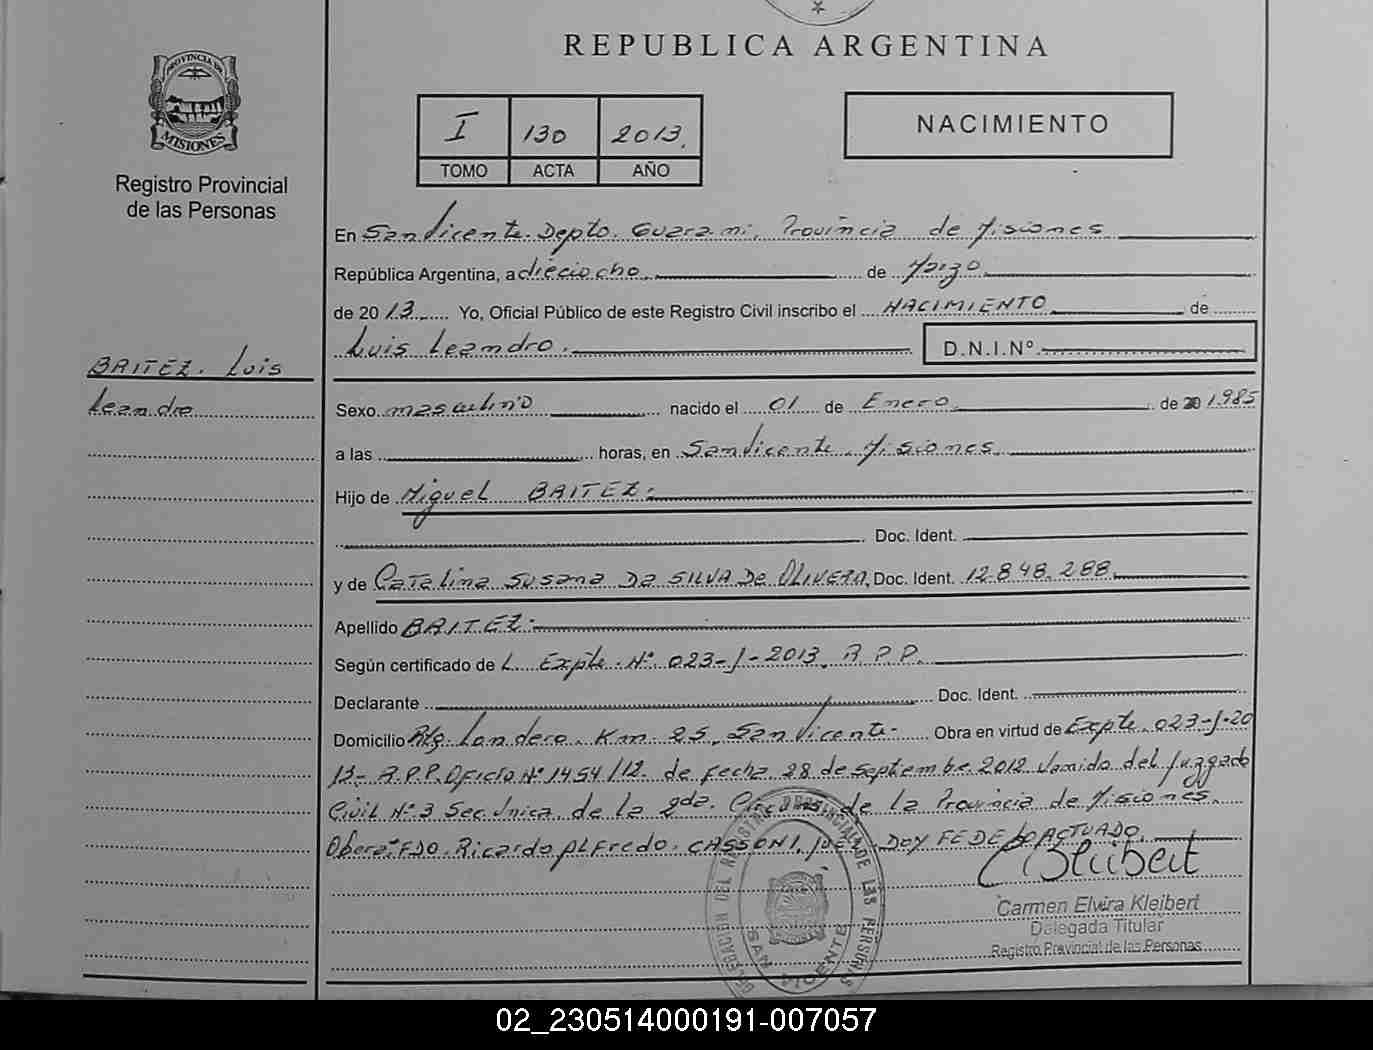 REPUBLICA ARGENTINA
PROVINCIA DE
MISIONES
Registro Provincial
de las Personas
I 130 2013
TOMO ACTA AÑO
NACIMIENTO
En San Vicente. Depto. Guaraní, Provincia de Misiones
República Argentina, a dieciocho de Marzo
de 2013 Yo, Oficial Público de este Registro Civil inscribo el NACIMIENTO de
Luis Leandro. D.N.I.Nº
BRITEZ. Luis
Leandro
Sexo masculino nacido el 01 de Enero de 20 1985
a las horas, en San Vicente. Misiones
Hijo de Miguel BRITEZ.
Doc. Ident.
y de Catalina Susana DA SILVA De OLIVERA, Doc. Ident. 12.848.288
Apellido BRITEZ.
Según certificado de L. Expte. Nº. 023-J-2013. R.P.P.
Declarante Doc. Ident.
Domicilio Londero. Km. 25. San Vicente. Obra en virtud de Expte. 023-J-20
13- R.P.P. Oficio Nº 1454/12. de fecha 28 de Septiembe 2012 Venido del Juzgado
Civil Nº 3 Sec. Unica. de la 2da. de la Provincia de Misiones.
Obera. FDO. Ricardo ALFredo. CASSONI. JUEZ. DOY FE DE LO ACTUADO.
CEKleibert
Carmen Elvira Kleibert
Delegada Titular
Registro Provincial de las Personas
DELEGACION DEL REGISTRO PROVINCIAL DE LAS PERSONAS
SAN VICENTE
02_230514000191-007057